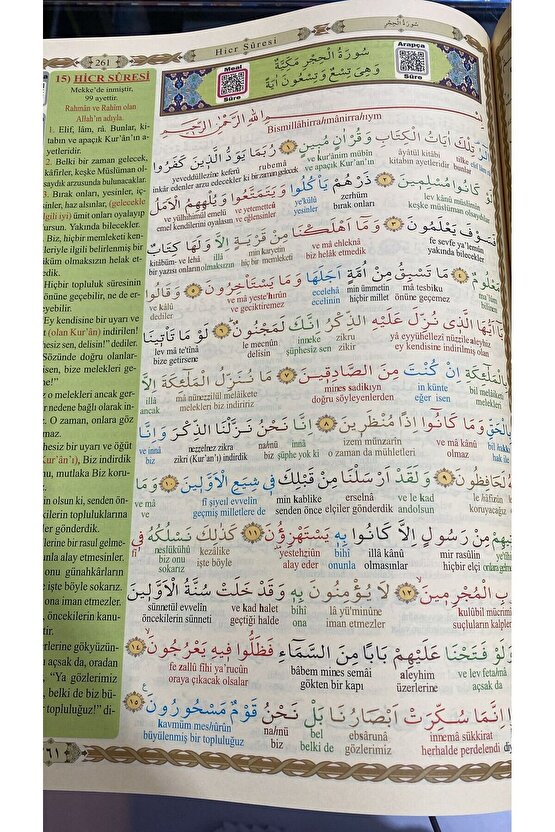 261
Hicr Sûresi
سُورَةُ الْحِجْرِ
15) HİCR SÛRESİ
Mekke'de inmiştir,
99 ayettir.
Rahmân ve Rahîm olan
Allah'ın adıyla.
1. Elif, lâm, râ. Bunlar, ki-
tabın ve apaçık Kur'ân'ın a-
yetleridir.
2. Belki bir zaman gelecek,
kâfirler, keşke Müslüman ol-
saydık arzusunda bulunacaklar.
3. Bırak onları, yesinler, iç-
sinler, haz alsınlar, (gelecekle
ilgili iyi) ümit onları oyalayıp
dursun. Yakında bilecekler.
Biz, hiçbir memleketi ken-
leriyle ilgili belirlenmiş bir
hüküm olmaksızın helak et-
dik.
Hiçbir topluluk süresinin
önüne geçebilir, ne de er-
eyebilir.
Ey kendisine bir uyarı ve
t (olan Kur'ân) indirilen!
hesiz sen, delisin!" dediler.
Sözünde doğru olanlar-
isen, bize melekleri ge-
be!"
z o melekleri ancak ger-
nedene bağlı olarak in-
O zaman, onlara göz
maz.
hesiz bir uyarı ve öğüt
Kur'ân'ı), Biz indirdik
nu, mutlaka Biz koru-
z.
n olsun ki, senden ön-
kilerin topluluklarına
ler gönderdik.
lerine bir rasul gelme-
nla alay etmesinler.
onu günahkârların
işte böyle sokarız.
ona iman etmezler.
öncekilerin kanu-
tir.
erlerine gökyüzün-
açsak da, oradan
"Ya gözlerimiz
belki de biz bü-
topluluğuz!" di-
Meal
Sûre
Arapça
Sûre
سُورَةُ الْحِجْرِ مَكِّيَّةٌ
وَهِيَ تِسْعٌ وَتِسْعُونَ اٰيَةً
بِسْمِ اللّٰهِ الرَّحْمٰنِ الرَّحٖيمِ
Bismillâhirra/mânirra/ıym
الٓرٰ تِلْكَ اٰيَاتُ الْكِتَابِ وَقُرْاٰنٍ مُبٖينٍ ١ رُبَمَا يَوَدُّ الَّذٖينَ كَفَرُوا
yeveddüllezîne keferû rubemâ ve kur'anim mübîn âyâtül kitâbi tilke
inkâr edenler arzu edecekler ki bir zaman gelecek ve apaçık Kur'an'ın kitabın ayetleridir bunlar
لَوْ كَانُوا مُسْلِمٖينَ ٢ ذَرْهُمْ يَأْكُلُوا وَيَتَمَتَّعُوا وَيُلْهِهِمُ الْاَمَلُ
ve yülhihimül emelü ve yetemetteû ye'külû zerhüm lev kânû müslimîn
emel kendilerini oyalasın ve eğlensinler yesinler bırak onları keşke müslüman olsaydılar
فَسَوْفَ يَعْلَمُونَ ٣ وَمَا اَهْلَكْنَا مِنْ قَرْيَةٍ اِلَّا وَلَهَا كِتَابٌ
kitâbüm- ve lehâ illâ min karyetin ve mâ ehleknâ fe sevfe ya'lemûn
bir yazısı onların olmaksızın hiç bir memleketi biz helak etmedik yakında bilecekler
مَعْلُومٌ ٤ مَا تَسْبِقُ مِنْ اُمَّةٍ اَجَلَهَا وَمَا يَسْتَأْخِرُونَ ٥ وَقَالُوا
ve kâlû ve mâ yeste'hırûn ecelehâ min ümmetin mâ tesbiku ma'lûm
dediler ve geciktiremez ecelini hiçbir millet önüne geçemez bilinen
يَٓا اَيُّهَا الَّذٖي نُزِّلَ عَلَيْهِ الذِّكْرُ اِنَّكَ لَمَجْنُونٌ ٦ لَوْ مَا تَأْتٖينَا
lev mâ te'tînâ le mecnûn inneke zikru yâ eyyühellezî nüzzile aleyhiz
bize getirsene delisin şüphesiz sen zikir ey kendisine indirilmiş olan
بِالْمَلٰٓئِكَةِ اِنْ كُنْتَ مِنَ الصَّادِقٖينَ ٧ مَا نُنَزِّلُ الْمَلٰٓئِكَةَ اِلَّا
illâ mâ nünezzilül melâikete mines sadikıyn in künte bil melâiketi
ancak melekleri biz indiririz doğru söyleyenlerden eğer isen melekleri
بِالْحَقِّ وَمَا كَانُٓوا اِذًا مُنْظَرٖينَ ٨ اِنَّا نَحْنُ نَزَّلْنَا الذِّكْرَ وَاِنَّا
ve innâ nezzelnez zikra na/nü innâ izem münzarîn ve mâ kânû bil hakkı
biz zikri (Kur'an'ı) indirdik biz şüphe yok ki o zaman da mühletleri olmaz hak ile
لَهُ لَحَافِظُونَ ٩ وَلَقَدْ اَرْسَلْنَا مِنْ قَبْلِكَ فٖي شِيَعِ الْاَوَّلٖينَ ١٠ وَمَا
ve mâ fî şiyeıl evvelîn min kablike erselnâ ve le kad le hâfizûn
ve geçmiş milletlere de senden önce elçiler gönderdik andolsun koruyacağız
يَأْتٖيهِمْ مِنْ رَسُولٍ اِلَّا كَانُوا بِهٖ يَسْتَهْزِؤُ۫نَ ١١ كَذٰلِكَ نَسْلُكُهُ فٖي
fî neslükühû kezâlike yestehziûn bihî illâ kânû mir rasûlin
biz onu sokarız işte böyle alay eder onunla olmasınlar hiçbir elçi
قُلُوبِ الْمُجْرِمٖينَ ١٢ لَا يُؤْمِنُونَ بِهٖ وَقَدْ خَلَتْ سُنَّةُ الْاَوَّلٖينَ
sünnetül evvelîn ve kad halet bihî lâ yü'minûne kulûbil mücrimîn
öncekilerin sünneti geçtiği halde ona iman etmezler suçluların kalpleri
وَلَوْ فَتَحْنَا عَلَيْهِمْ بَابًا مِنَ السَّمَٓاءِ فَظَلُّوا فٖيهِ يَعْرُجُونَ ١٤
fe zallû fîhi ya'rucûn bâbem mines semâi aleyhim ve lev feta/nâ
oraya çıkacak olsalar gökten bir kapı üzerlerine açsak da
اِنَّمَا سُكِّرَتْ اَبْصَارُنَا بَلْ نَحْنُ قَوْمٌ مَسْحُورُونَ ١٥
kavmüm mes/ûrûn na/nü bel ebsârunâ innemâ sükkirat
büyülenmiş bir topluluğuz biz belki de gözlerimiz herhalde perdelendi